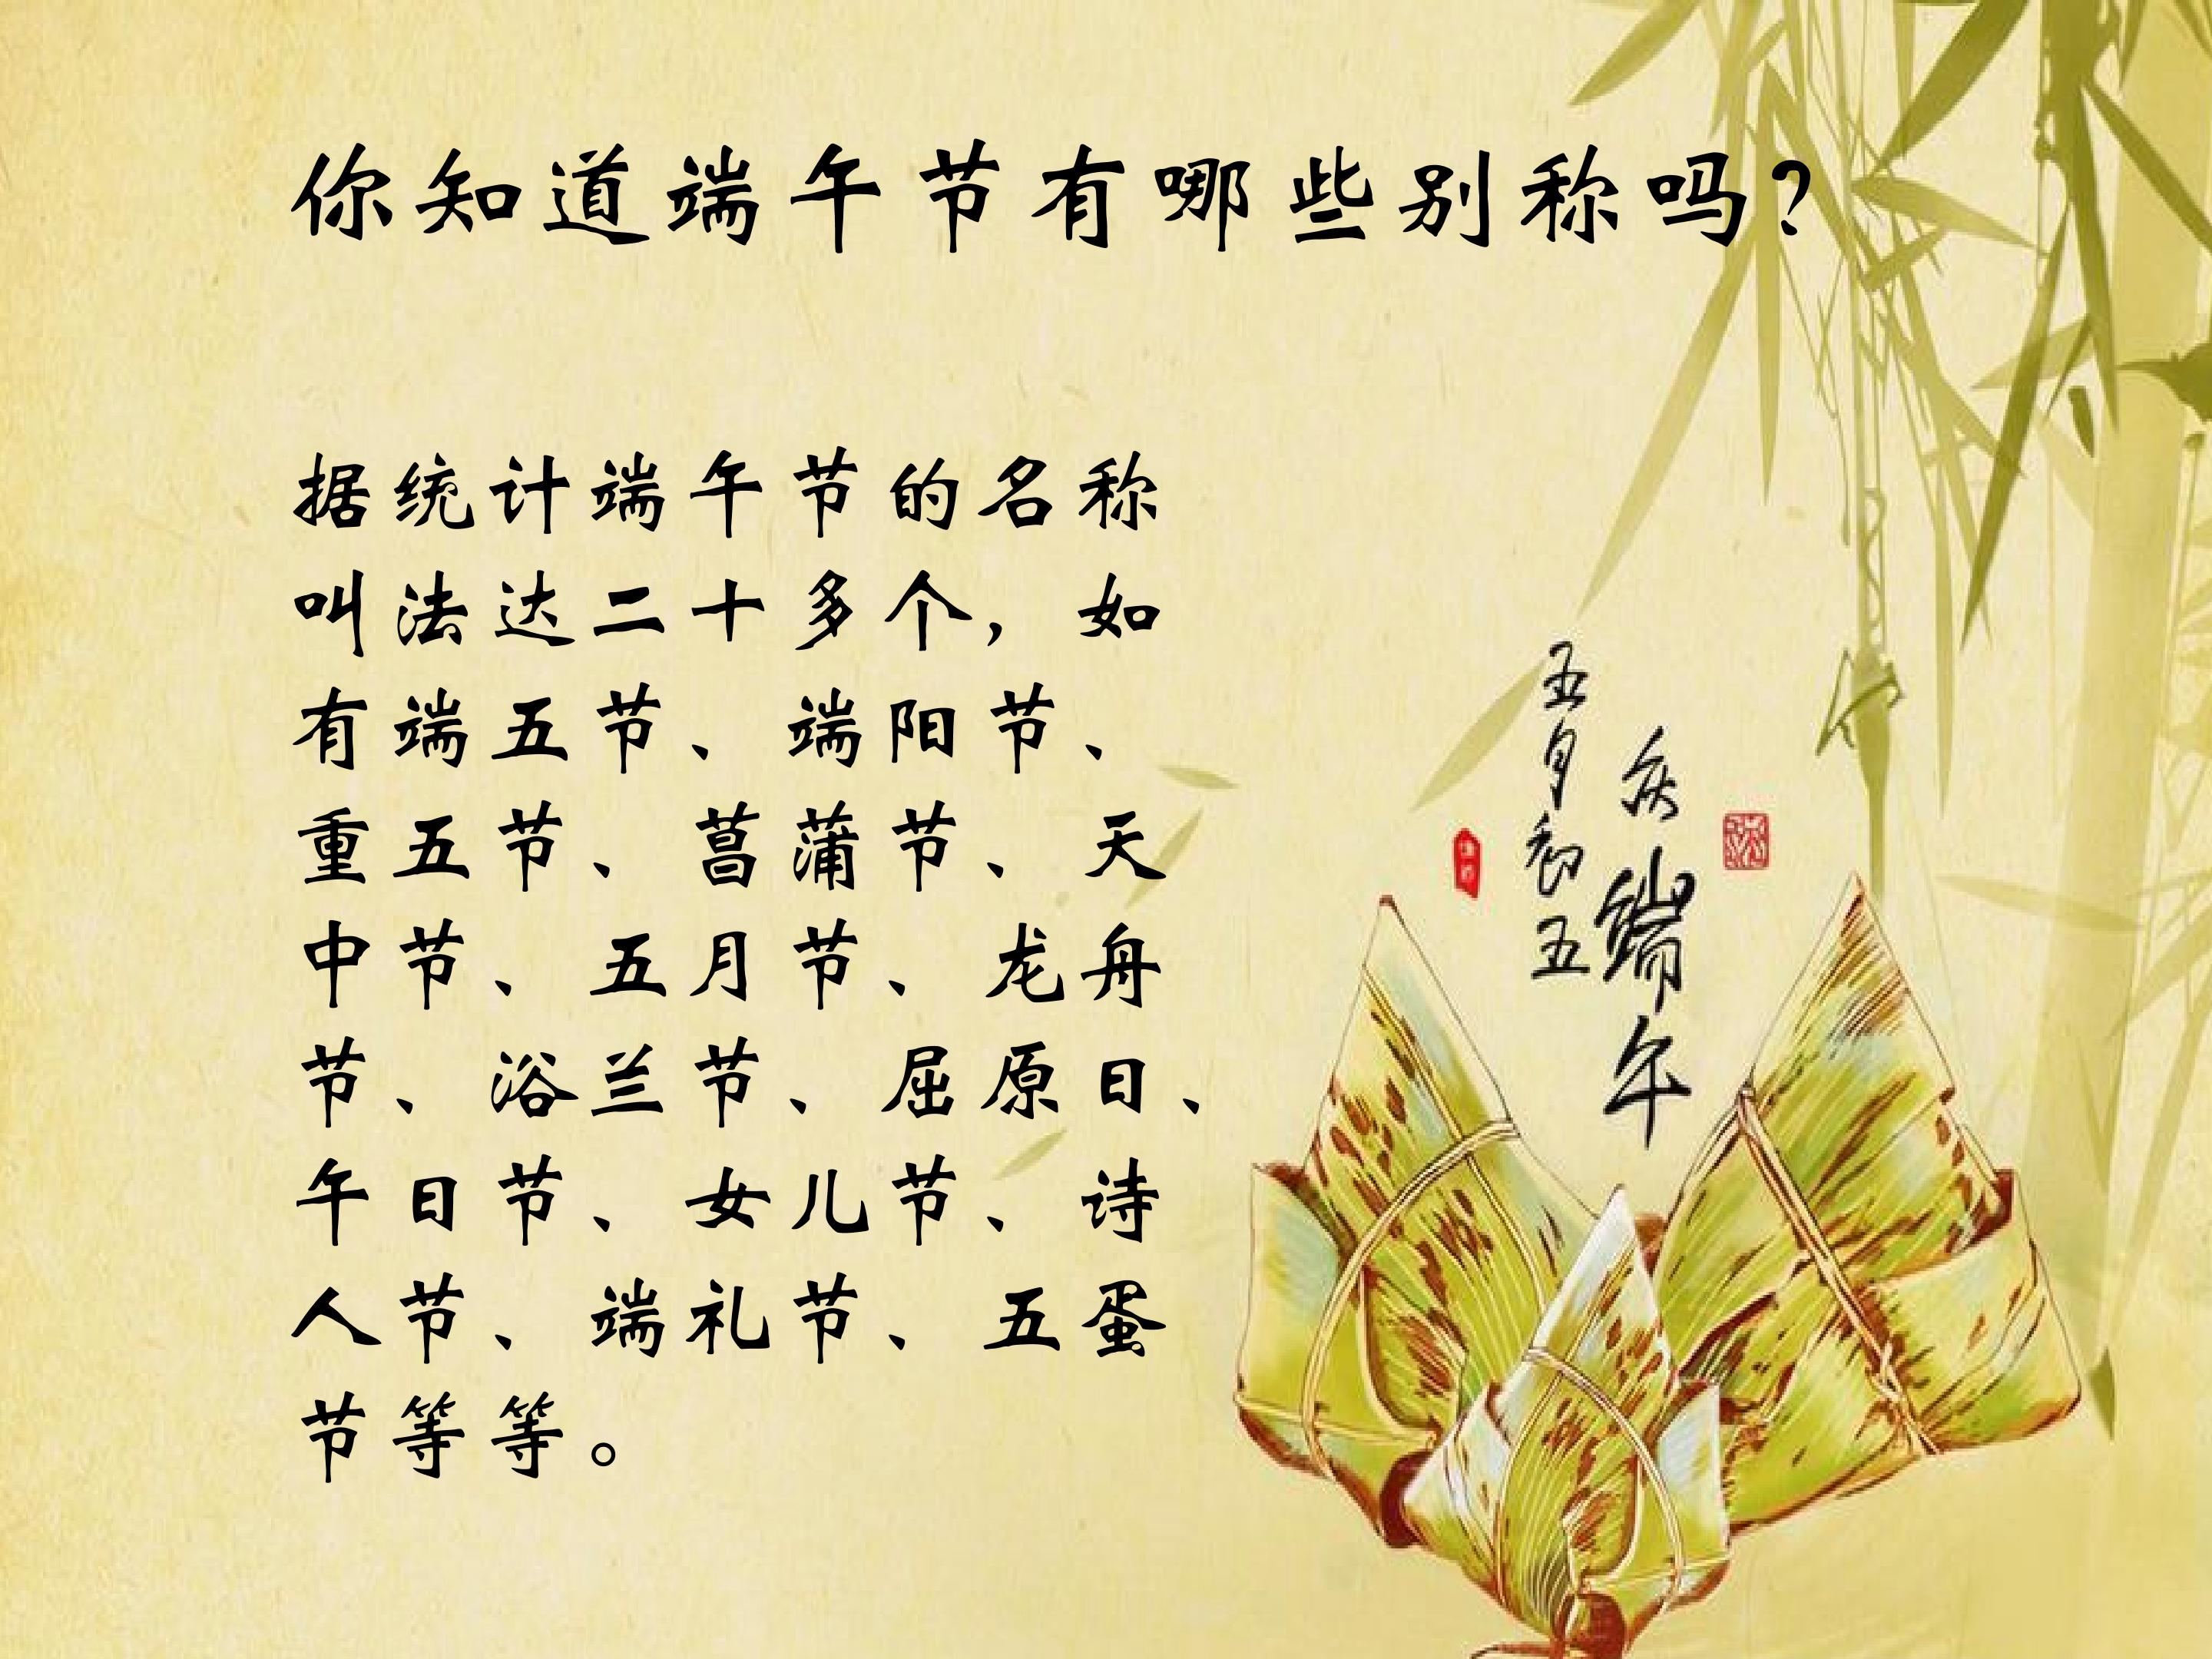 你知道端午节有哪些别称吗？
据统计端午节的名称
叫法达二十多个，如
有端五节、端阳节、
重五节、菖蒲节、天
中节、五月节、龙舟
节、浴兰节、屈原日、
午日节、女儿节、诗
人节、端礼节、五蛋
节等等。
庆端午
五月初五